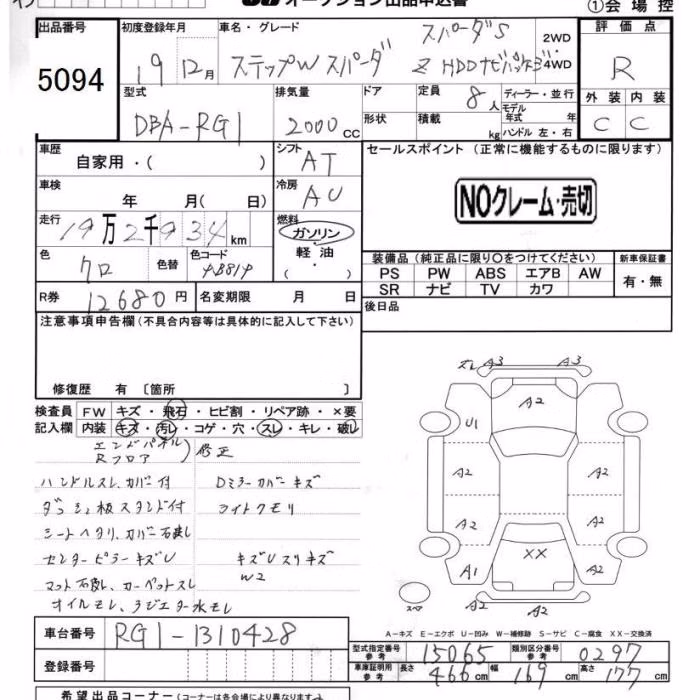 オークション出品申込書
①会場控
出品番号 5094
初度登録年月 19 12月
車名・グレード ステップW スパーダ スパーダS Z HDDナビパッケージ 2WD・4WD
評価点 R
外装 C 内装 C
型式 DBA-RG1
排気量 2000cc
ドア 形状
定員 8人
積載 kg
ディーラー・並行
モデル年式 年
ハンドル 左・右
車歴 自家用・( )
シフト AT
車検 年 月( 日)
冷房 AU
走行 19万2千934km
燃料 ガソリン・軽油 ( ・ )
色 クロ 色替 色コード YB881P
R券 12680円 名変期限 月 日
セールスポイント (正常に機能するものに限ります)
NOクレーム・売切
装備品 (純正品に限り○をつけてください)
PS PW ABS エアB AW
SR ナビ TV カワ
新車保証書 有・無
後日品
注意事項申告欄 (不具合内容等は具体的に記入して下さい)
修復歴 有 〔箇所 〕
検査員記入欄
FW キズ・飛石・ヒビ割・リペア跡・×要
内装 キズ・汚レ・コゲ・穴・スレ・キレ・破レ
エンドパネル
Rフロア ) 修正
ハンドルスレ、カバー付 Dミラーカバーキズ
ダッシュ板スタンド付 ライトクモリ
シートヘタリ、カバー石鹸し
センターピラーキズU キズUスリキズ
W2
マット石鹸し、カーペットスレ
オイルモレ、ラジエター水モレ
ズレ A3 A3
A2
U1
A2 A2
A2 A2
XX
A1 A2
スペア A2 A2
A-キズ E-エクボ U-凹み W-補修跡 S-サビ C-腐食 XX-交換済
車台番号 RG1-1310428
登録番号
型式指定番号 参考 15065 類別区分番号 参考 0297
車庫証明用 参考 長さ 466cm 幅 169cm 高さ 177cm
希望出品コーナー (コーナーは各会場により異なります)